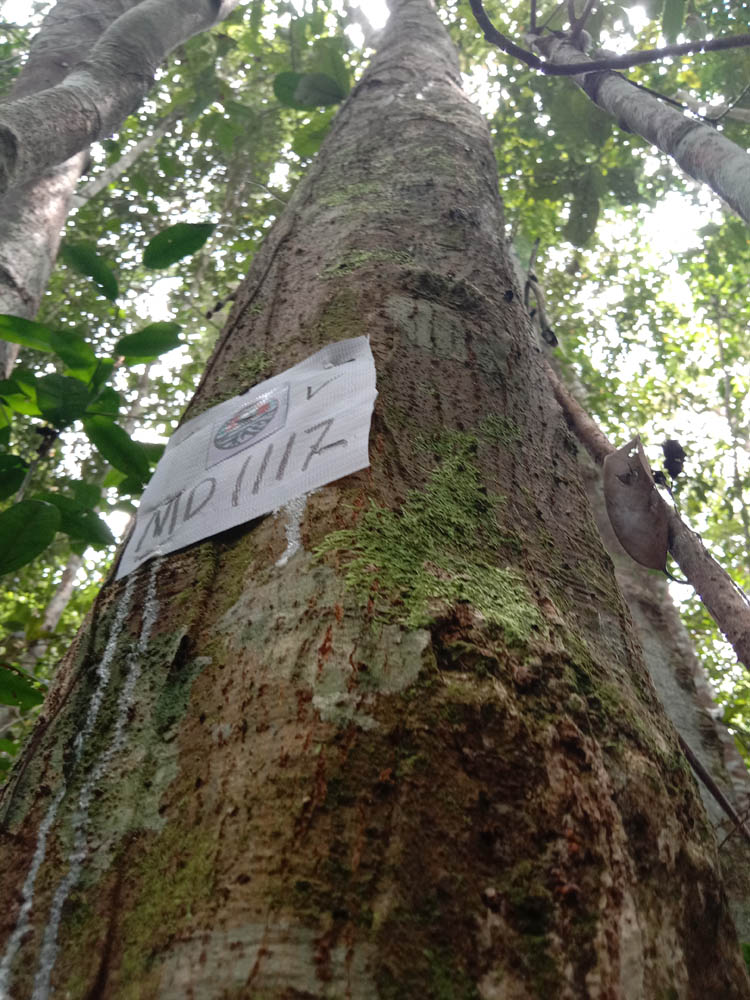 MD 1117